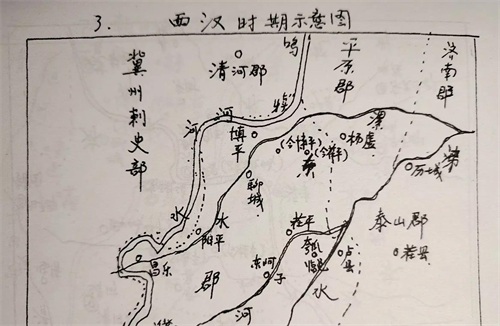 3. 西汉时期示意图
冀州刺史部
清河郡
鸣
犊
河
平原郡
济南郡
河
水
博平
(今博平)
(今茌平)
杨虚
漯
水
聊城
阳平
昌乐
郡
历城
济
泰山郡
茬县
茌平
东阿
卢县
水
河